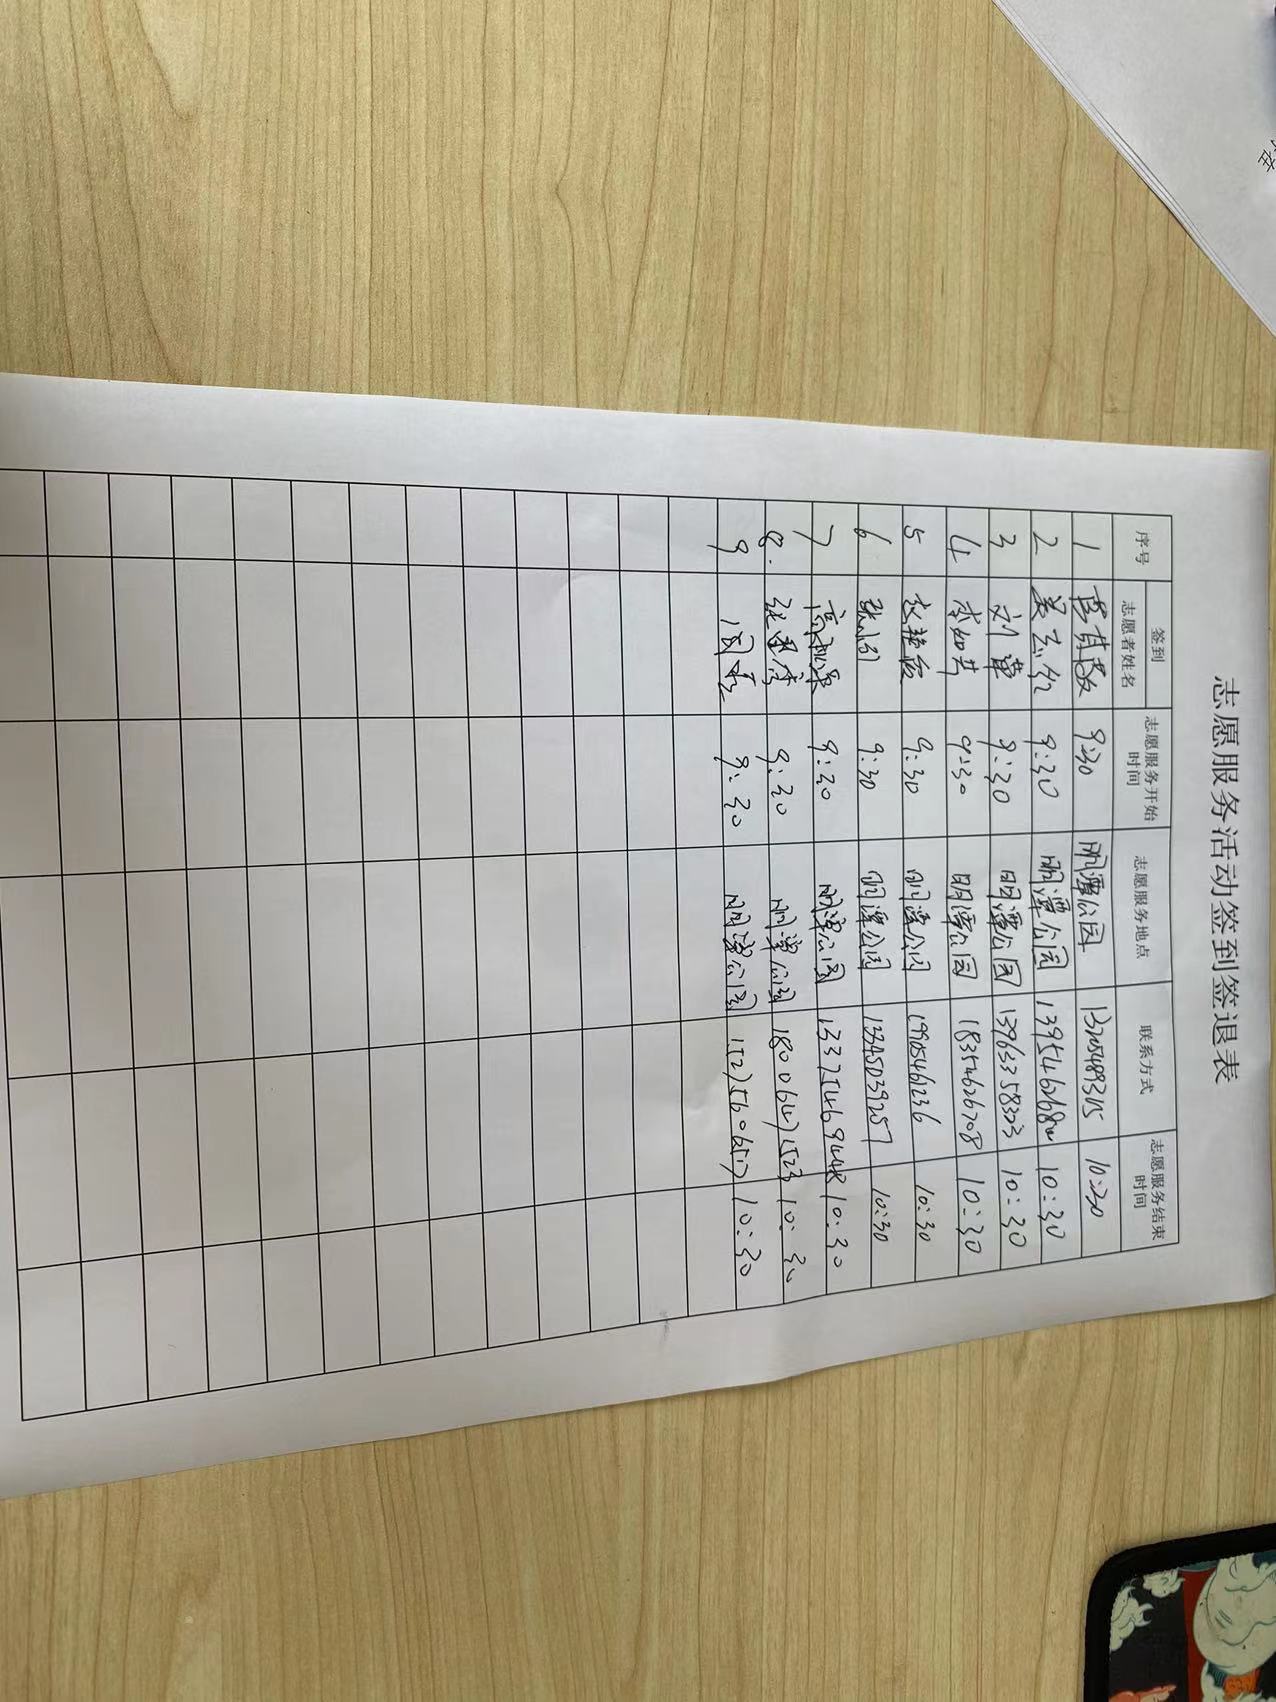 志愿服务活动签到签退表
序号 签到 志愿者姓名 志愿服务开始时间 志愿服务地点 联系方式 志愿服务结束时间
1 9:30 明潭公园 10:30
2 9:30 明潭公园 10:30
3 刘 9:30 明潭公园 13963358323 10:30
4 李如芳 9:30 明潭公园 18354626708 10:30
5 赵艳霞 9:30 明潭公园 19905461236 10:30
6 9:30 明潭公园 13345039257 10:30
7 9:30 明潭公园 13375469448 10:30
8. 9:30 明潭公园 18006471523 10:30
9 周 9:30 明潭公园 10:30